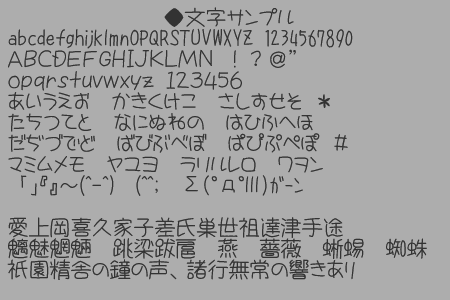 ◆文字サンプル
abcdefghijklmnOPQRSTUVWXYZ 1234567890
ABCDEFGHIJKLMN ！？＠”
opqrstuvwxyz 123456
あいうえお かきくけこ さしすせそ ＊
たちつてと なにぬねの はひふへほ
だぢづでど ばびぶべぼ ぱぴぷぺぽ ＃
マミムメモ ヤユヨ ラリルレロ ワヲン
「」『』～(^-^) (^^; Σ(ﾟдﾟlll)ｶﾞｰﾝ
愛上岡喜久家子差氏巣世祖達津手途
魑魅魍魎 跳梁跋扈 燕 薔薇 蜥蜴 蜘蛛
祇園精舎の鐘の声、諸行無常の響きあり